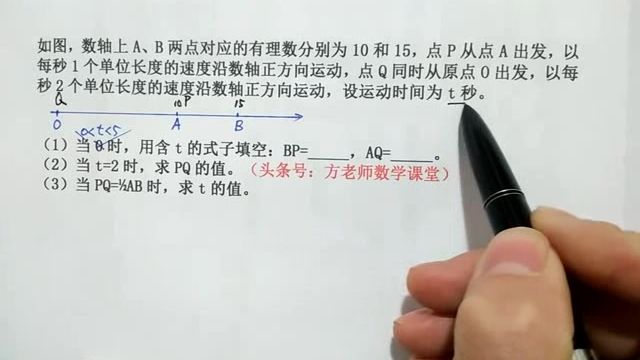 如图，数轴上 A、B 两点对应的有理数分别为 10 和 15，点 P 从点 A 出发，以
每秒 1 个单位长度的速度沿数轴正方向运动，点 Q 同时从原点 O 出发，以每
秒 2 个单位长度的速度沿数轴正方向运动，设运动时间为 t 秒。
Q 10 P 15
O A B
0<t<5
（1）当 时，用含 t 的式子填空：BP=____，AQ=____。
（2）当 t=2 时，求 PQ 的值。（头条号：方老师数学课堂）
（3）当 PQ=½AB 时，求 t 的值。